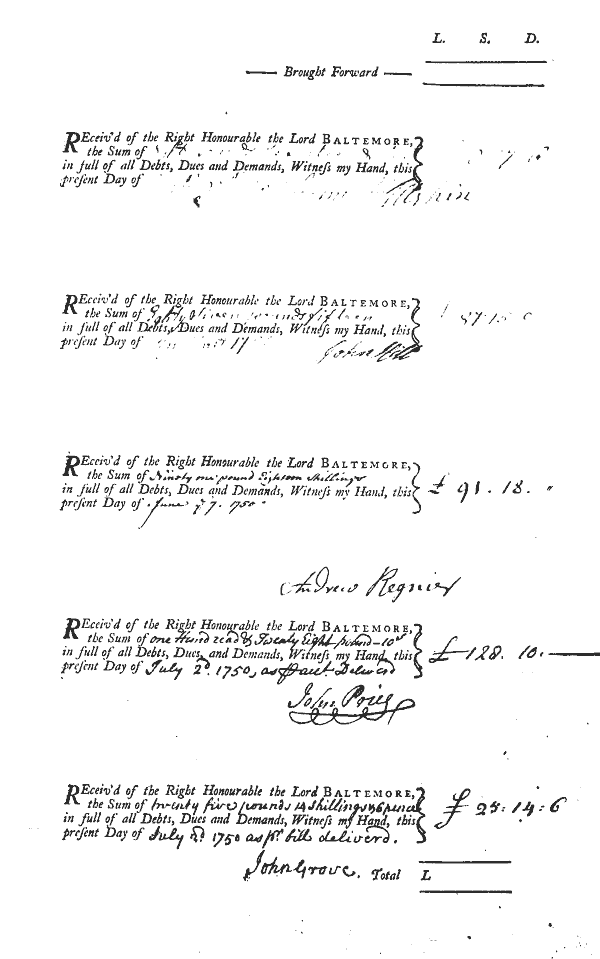 L. S. D.
Brought Forward
REceiv'd of the Right Honourable the Lord BALTEMORE,
the Sum of
in full of all Debts, Dues and Demands, Witneſs my Hand, this
preſent Day of
REceiv'd of the Right Honourable the Lord BALTEMORE,
the Sum of Eighty Seven pounds fifteen
in full of all Debts, Dues and Demands, Witneſs my Hand, this
preſent Day of 17
87 15 0
John Hill
REceiv'd of the Right Honourable the Lord BALTEMORE,
the Sum of Ninty one pound Eighteen Shillings
in full of all Debts, Dues and Demands, Witneſs my Hand, this
preſent Day of June ye 7. 1750
£ 91. 18. "
Andrew Regnier
REceiv'd of the Right Honourable the Lord BALTEMORE,
the Sum of one Hundread & Twenty Eight pound - 10s
in full of all Debts, Dues and Demands, Witneſs my Hand, this
preſent Day of July 2d. 1750, as Delivered
£ 128. 10.
John Price
REceiv'd of the Right Honourable the Lord BALTEMORE,
the Sum of twenty five pounds 14 shillings & 6 pence
in full of all Debts, Dues and Demands, Witneſs my Hand, this
preſent Day of July 2d. 1750 as pr. bill deliverd.
£ 25: 14: 6
John Grove.
Total L